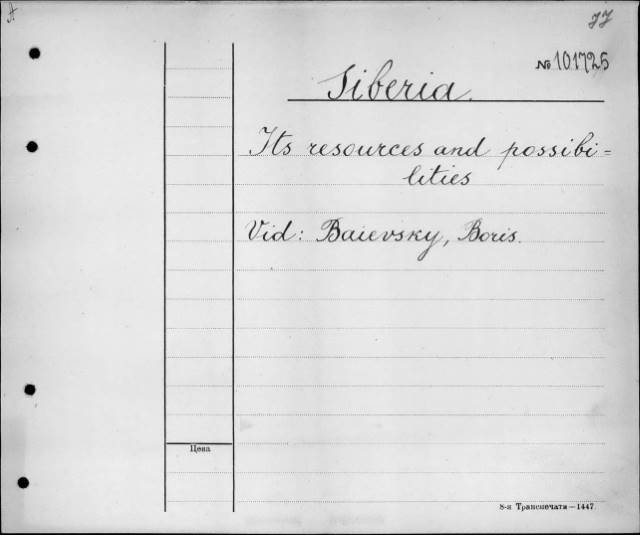 A
77
№ 101725
Siberia.
Its resources and possibi=
lities
Vid: Baievsky, Boris.
Цена
8-я Транспечати—1447.